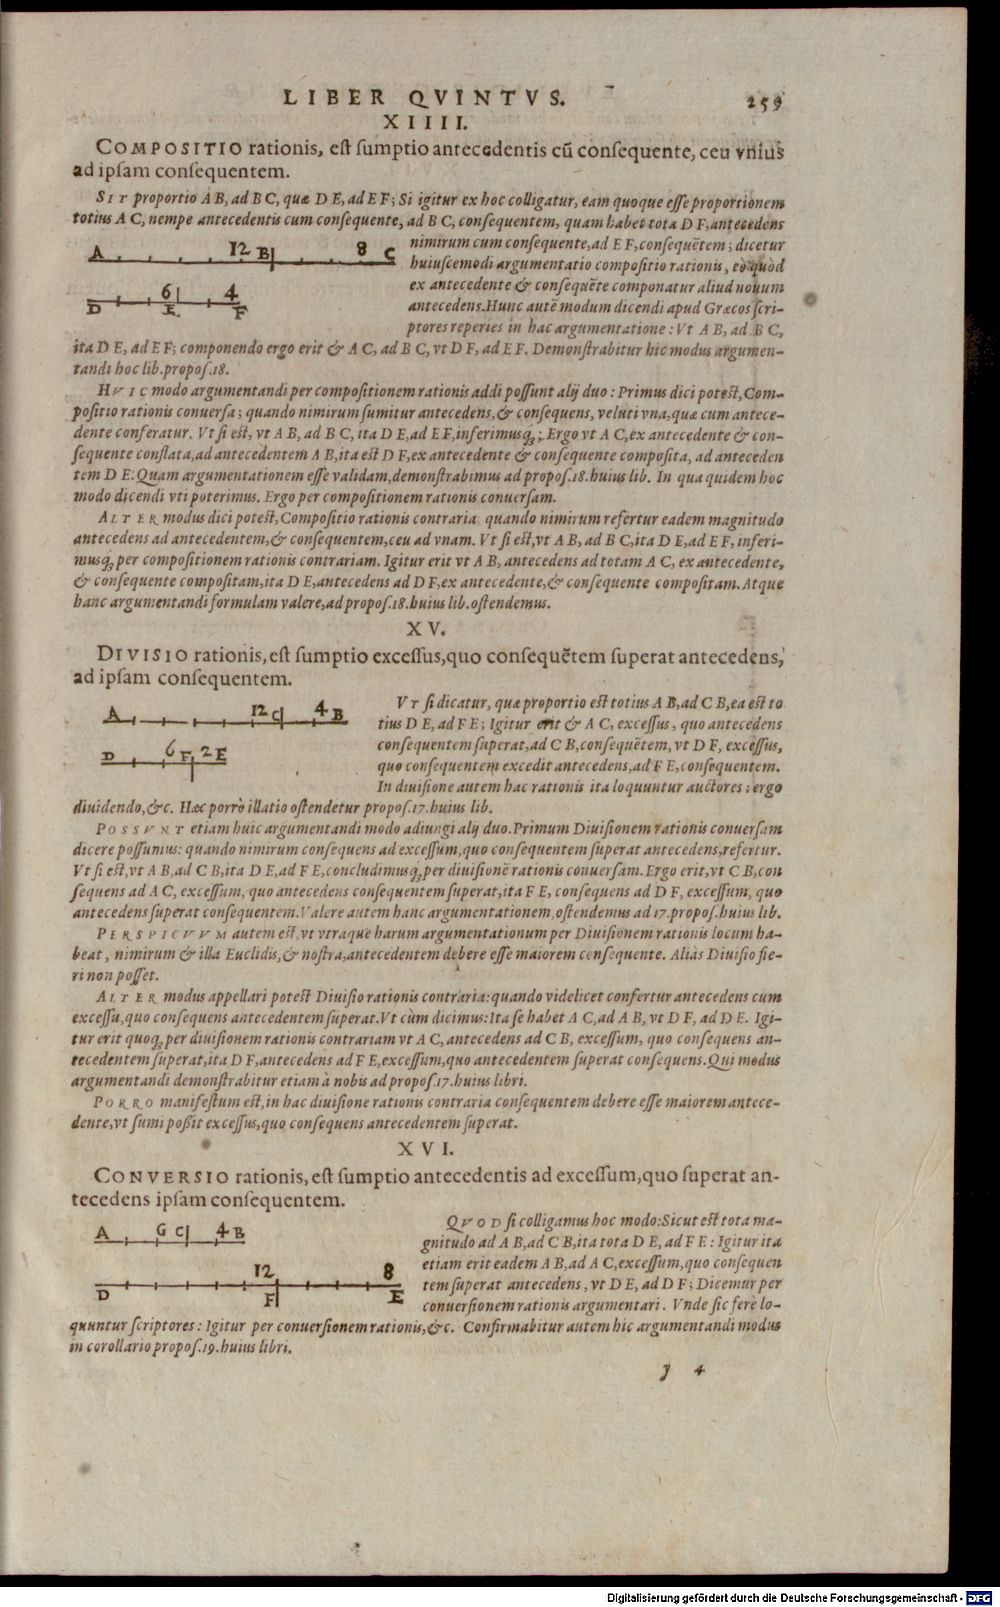 LIBER QVINTVS. 259
XIIII.
COMPOSITIO rationis, est sumptio antecedentis cū consequente, ceu vnius
ad ipsam consequentem.
SIT proportio A B, ad B C, quæ D E, ad E F; Si igitur ex hoc colligatur, eam quoque esse proportionem
totius A C, nempe antecedentis cum consequente, ad B C, consequentem, quam habet tota D F, antecedens
nimirum cum consequente, ad E F, consequētem; dicetur
huiuscemodi argumentatio compositio rationis, eò quòd
ex antecedente & consequēte componatur aliud nouum
antecedens. Hunc autē modum dicendi apud Græcos scri-
ptores reperies in hac argumentatione: Vt A B, ad B C,
A 12 B 8 C
D 6 E 4 F
ita D E, ad E F; componendo ergo erit & A C, ad B C, vt D F, ad E F. Demonstrabitur hic modus argumen-
tandi hoc lib. propos. 18.
HVIC modo argumentandi per compositionem rationis addi possunt alij duo: Primus dici potest, Com-
positio rationis conuersa; quando nimirum sumitur antecedens, & consequens, veluti vna, quæ cum antece-
dente conferatur. Vt si est, vt A B, ad B C, ita D E, ad E F, inferimusq́;; Ergo vt A C, ex antecedente & con-
sequente conflata, ad antecedentem A B, ita est D F, ex antecedente & consequente composita, ad anteceden
tem D E: Quam argumentationem esse validam, demonstrabimus ad propos. 18. huius lib. In qua quidem hoc
modo dicendi vti poterimus. Ergo per compositionem rationis conuersam.
ALTER modus dici potest, Compositio rationis contraria, quando nimirum refertur eadem magnitudo
antecedens ad antecedentem, & consequentem, ceu ad vnam. Vt si est, vt A B, ad B C, ita D E, ad E F, inferi-
musq́; per compositionem rationis contrariam. Igitur erit vt A B, antecedens ad totam A C, ex antecedente,
& consequente compositam, ita D E, antecedens ad D F, ex antecedente, & consequente compositam. Atque
hanc argumentandi formulam valere, ad propos. 18. huius lib. ostendemus.
XV.
DIVISIO rationis, est sumptio excessus, quo consequētem superat antecedens,
ad ipsam consequentem.
VT si dicatur, quæ proportio est totius A B, ad C B, ea est to
tius D E, ad F E; Igitur erit & A C, excessus, quo antecedens
consequentem superat, ad C B, consequētem, vt D F, excessus,
quo consequentem excedit antecedens, ad F E, consequentem.
In diuisione autem hac rationis ita loquuntur auctores: ergo
A 12 C 4 B
D 6 F 2 E
diuidendo, &c. Hæc porrò illatio ostendetur propos. 17. huius lib.
POSSVNT etiam huic argumentandi modo adiungi alij duo. Primum Diuisionem rationis conuersam
dicere possumus: quando nimirum consequens ad excessum, quo consequentem superat antecedens, refertur.
Vt si est, vt A B, ad C B, ita D E, ad F E, concludimusq́; per diuisionē rationis conuersam. Ergo erit, vt C B, con
sequens ad A C, excessum, quo antecedens consequentem superat, ita F E, consequens ad D F, excessum, quo
antecedens superat consequentem. Valere autem hanc argumentationem, ostendemus ad 17. propos. huius lib.
PERSPICVVM autem est, vt vtraque harum argumentationum per Diuisionem rationis locum ha-
beat, nimirum & illa Euclidis, & nostra, antecedentem debere esse maiorem consequente. Aliàs Diuisio fie-
ri non posset.
ALTER modus appellari potest Diuisio rationis contraria: quando videlicet confertur antecedens cum
excessu, quo consequens antecedentem superat. Vt cùm dicimus: Ita se habet A C, ad A B, vt D F, ad D E. Igi-
tur erit quoq; per diuisionem rationis contrariam vt A C, antecedens ad C B, excessum, quo consequens an-
tecedentem superat, ita D F, antecedens ad F E, excessum, quo antecedentem superat consequens. Qui modus
argumentandi demonstrabitur etiam à nobis ad propos. 17. huius libri.
PORRO manifestum est, in hac diuisione rationis contraria consequentem debere esse maiorem antece-
dente, vt sumi possit excessus, quo consequens antecedentem superat.
XVI.
CONVERSIO rationis, est sumptio antecedentis ad excessum, quo superat an-
tecedens ipsam consequentem.
QVOD si colligamus hoc modo: Sicut est tota ma-
gnitudo ad A B, ad C B, ita tota D E, ad F E: Igitur ita
etiam erit eadem A B, ad A C, excessum, quo consequen
tem superat antecedens, vt D E, ad D F; Dicemur per
conuersionem rationis argumentari. Vnde sic ferè lo-
A G C 4 B
D 12 F 8 E
quuntur scriptores: Igitur per conuersionem rationis, &c. Confirmabitur autem hic argumentandi modus
in corollario propos. 19. huius libri.
y 4
Digitalisierung gefördert durch die Deutsche Forschungsgemeinschaft - DFG